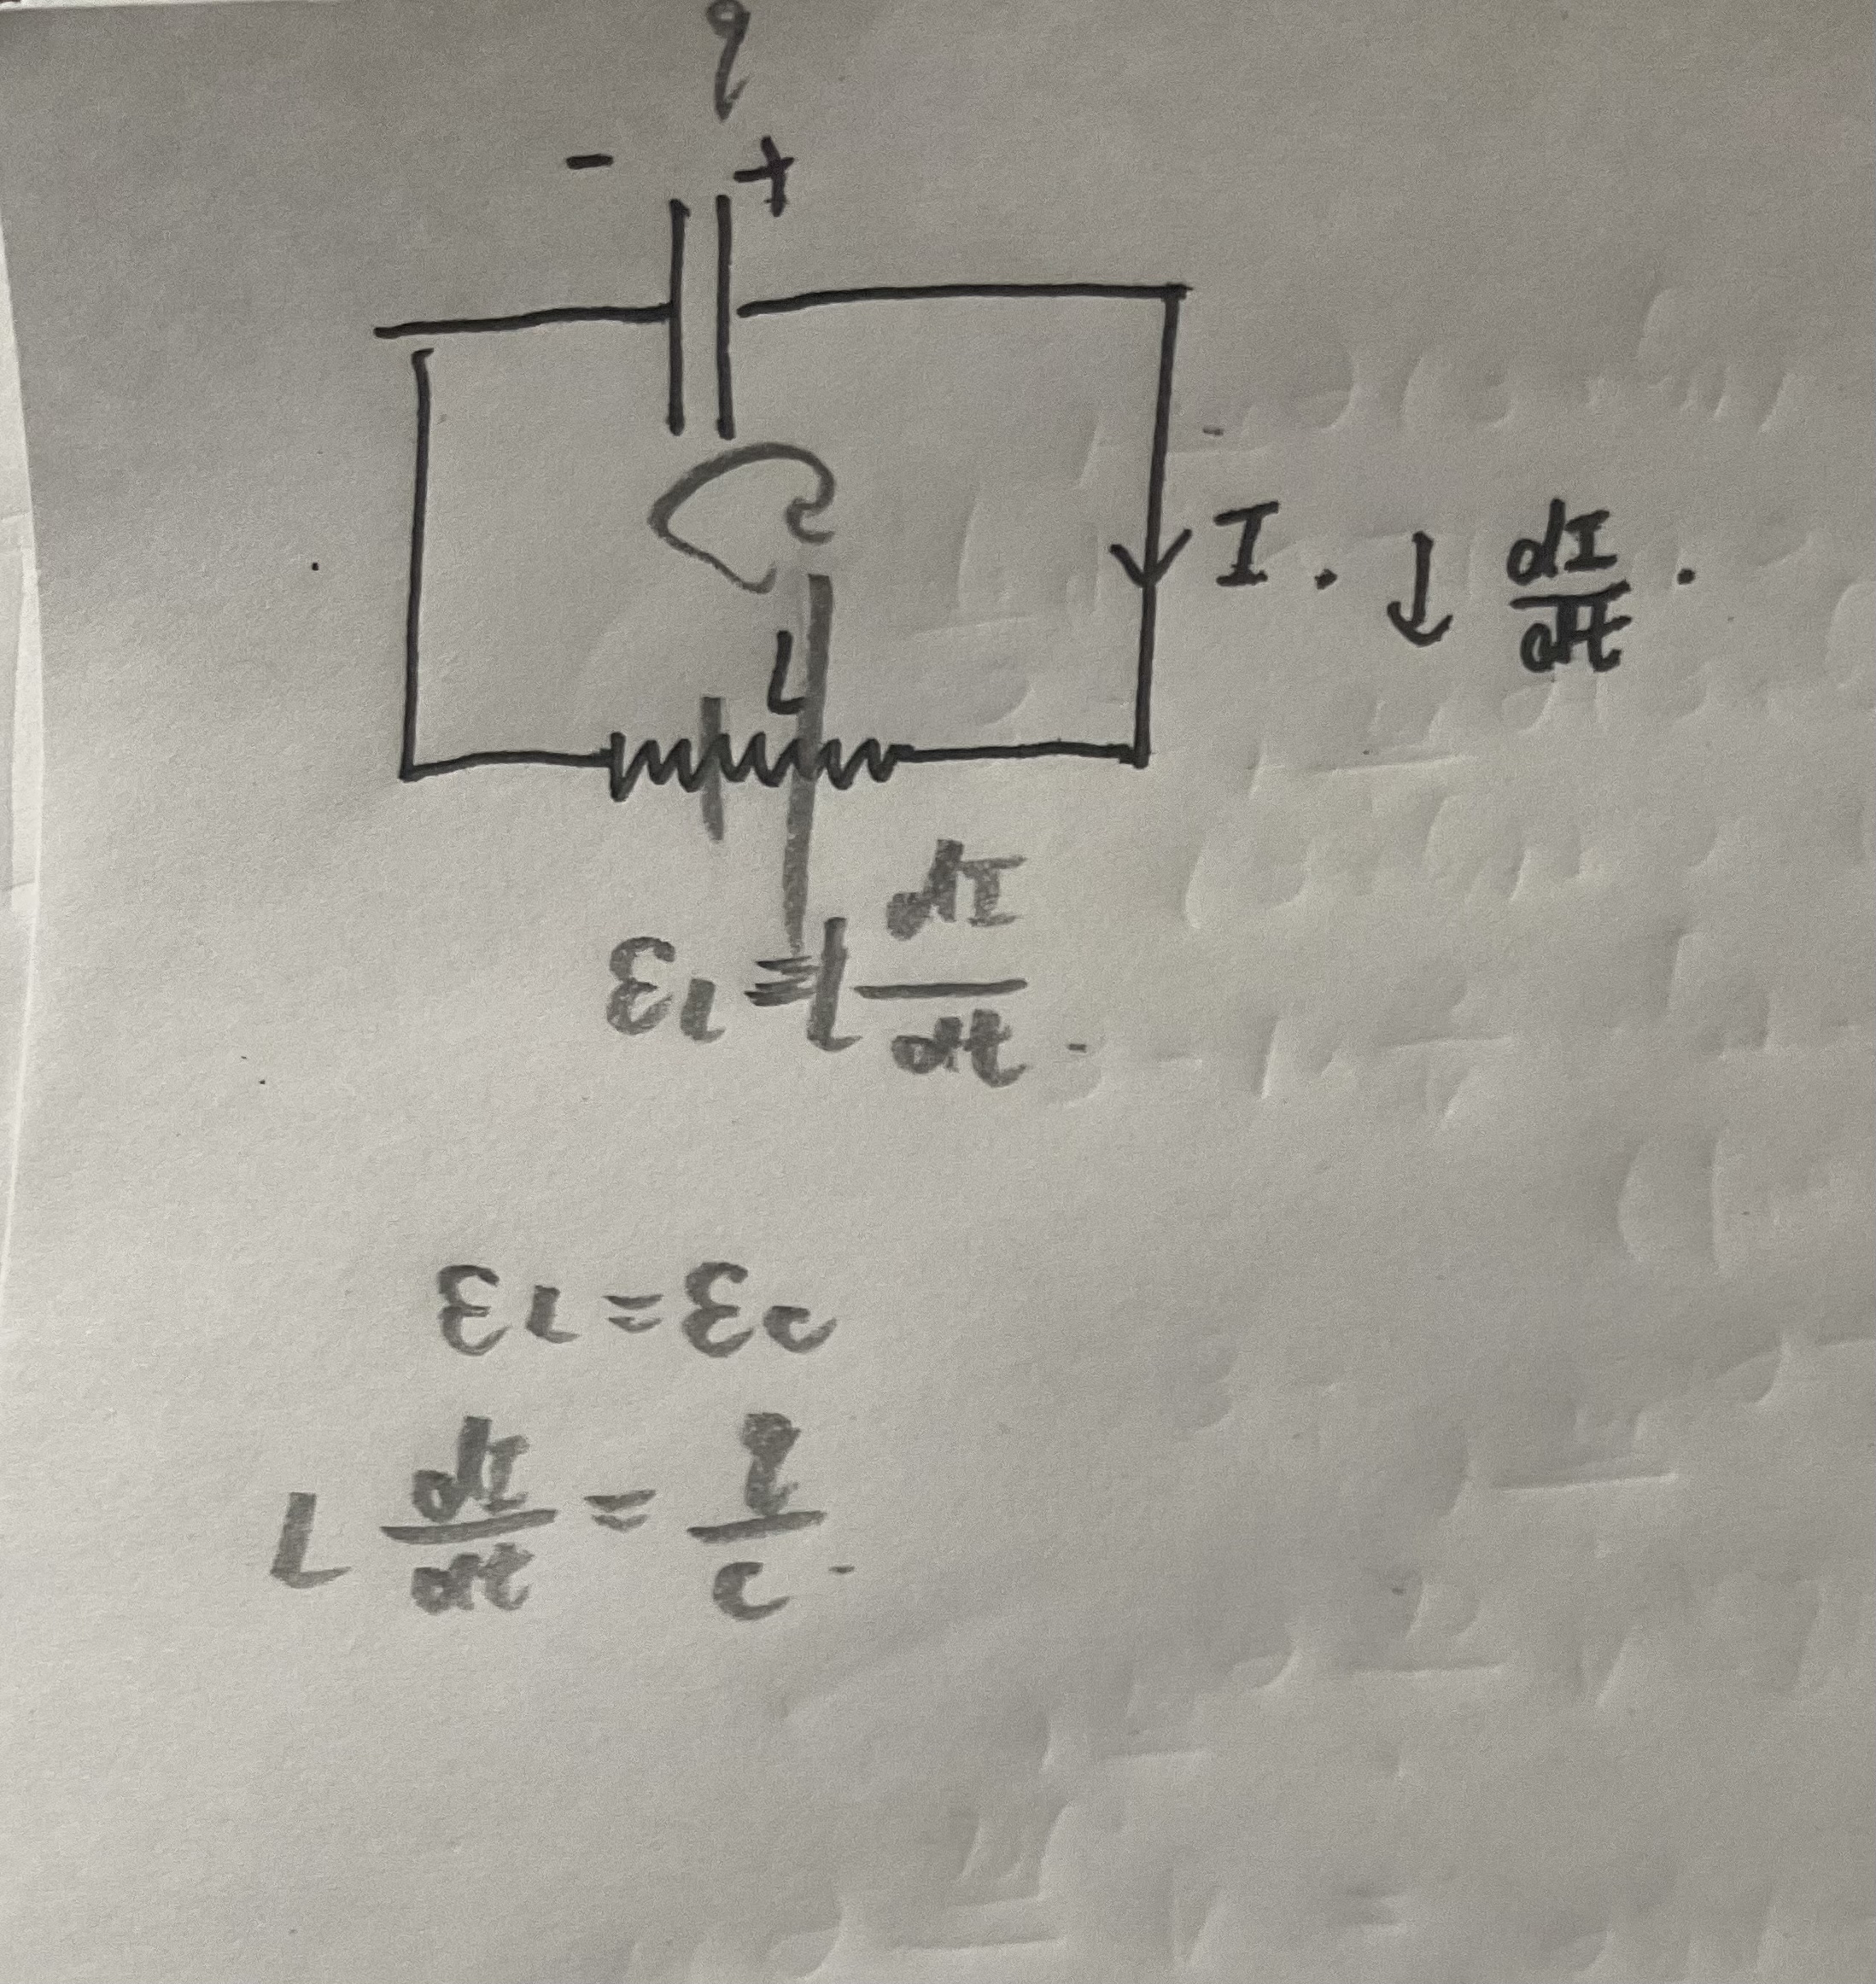 q
- +
C
I . ↓ dI/dt .
L
εL = L dI/dt .
εL = εc
L dI/dt = q/c .